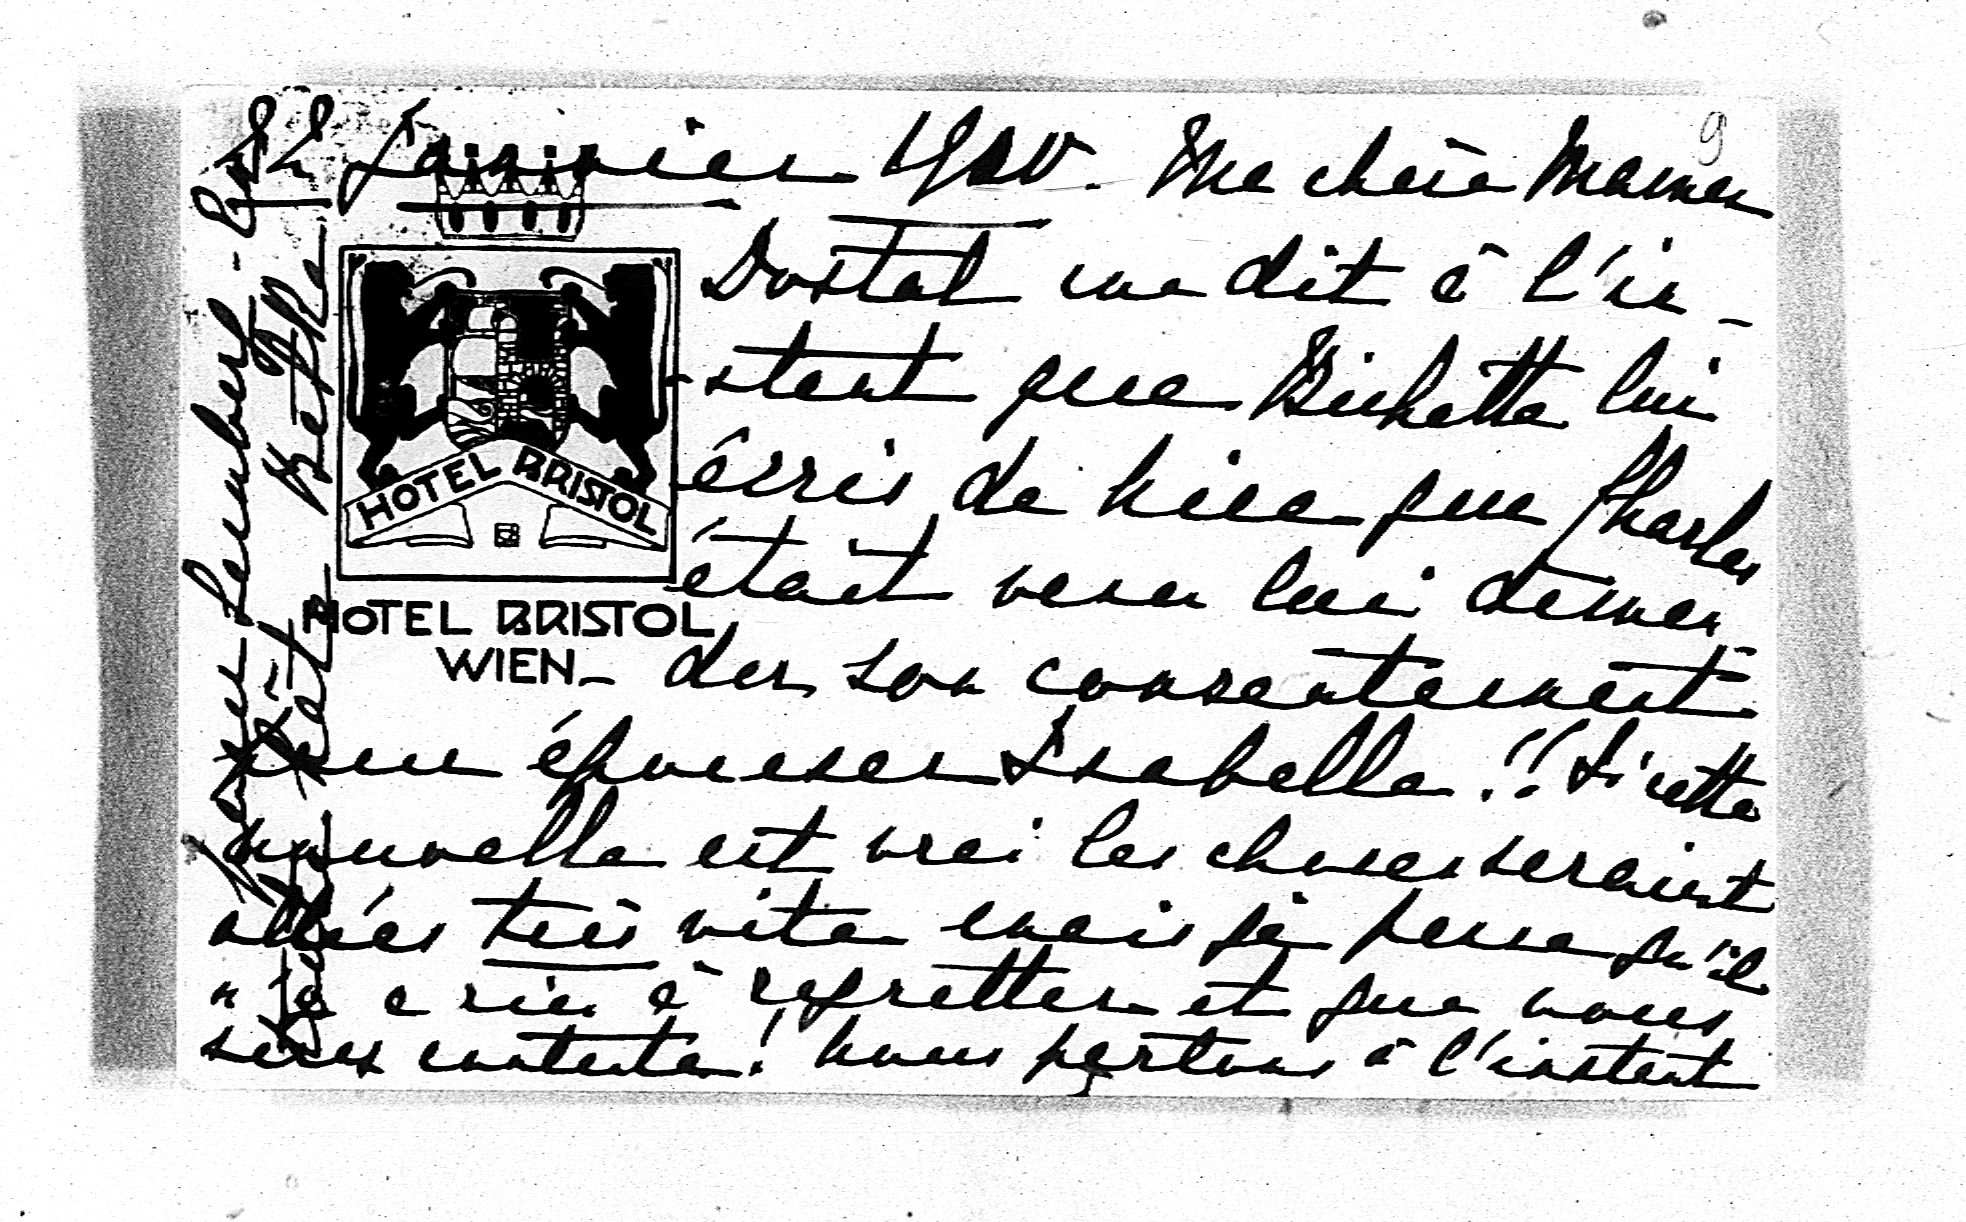 22 Janvier Ma chère Maman
Dostal me dit à l'in-
-stant que Bichette lui
écris de hier que Charles
était venu lui deman-
-der son consentement
pour épouser Isabelle!! Si cette
nouvelle est vrai les choses seraient
allées très vite mais je pense qu'il
n'y a rien à regretter et que vous
seres contente! Nous partons à l'instant
pour Lemberg -
HOTEL BRISTOL
HOTEL BRISTOL
WIEN